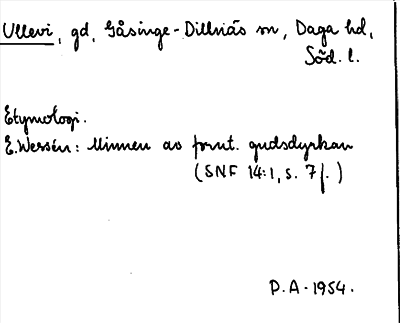 Ullevi, gd, Gåsinge-Dillnäs sn, Daga hd,
Söd. l.
Etymologi.
E. Wessén: Minnen av fornt. gudsdyrkan
(SNF 14:1, s. 7f.)
D.A. 1954.